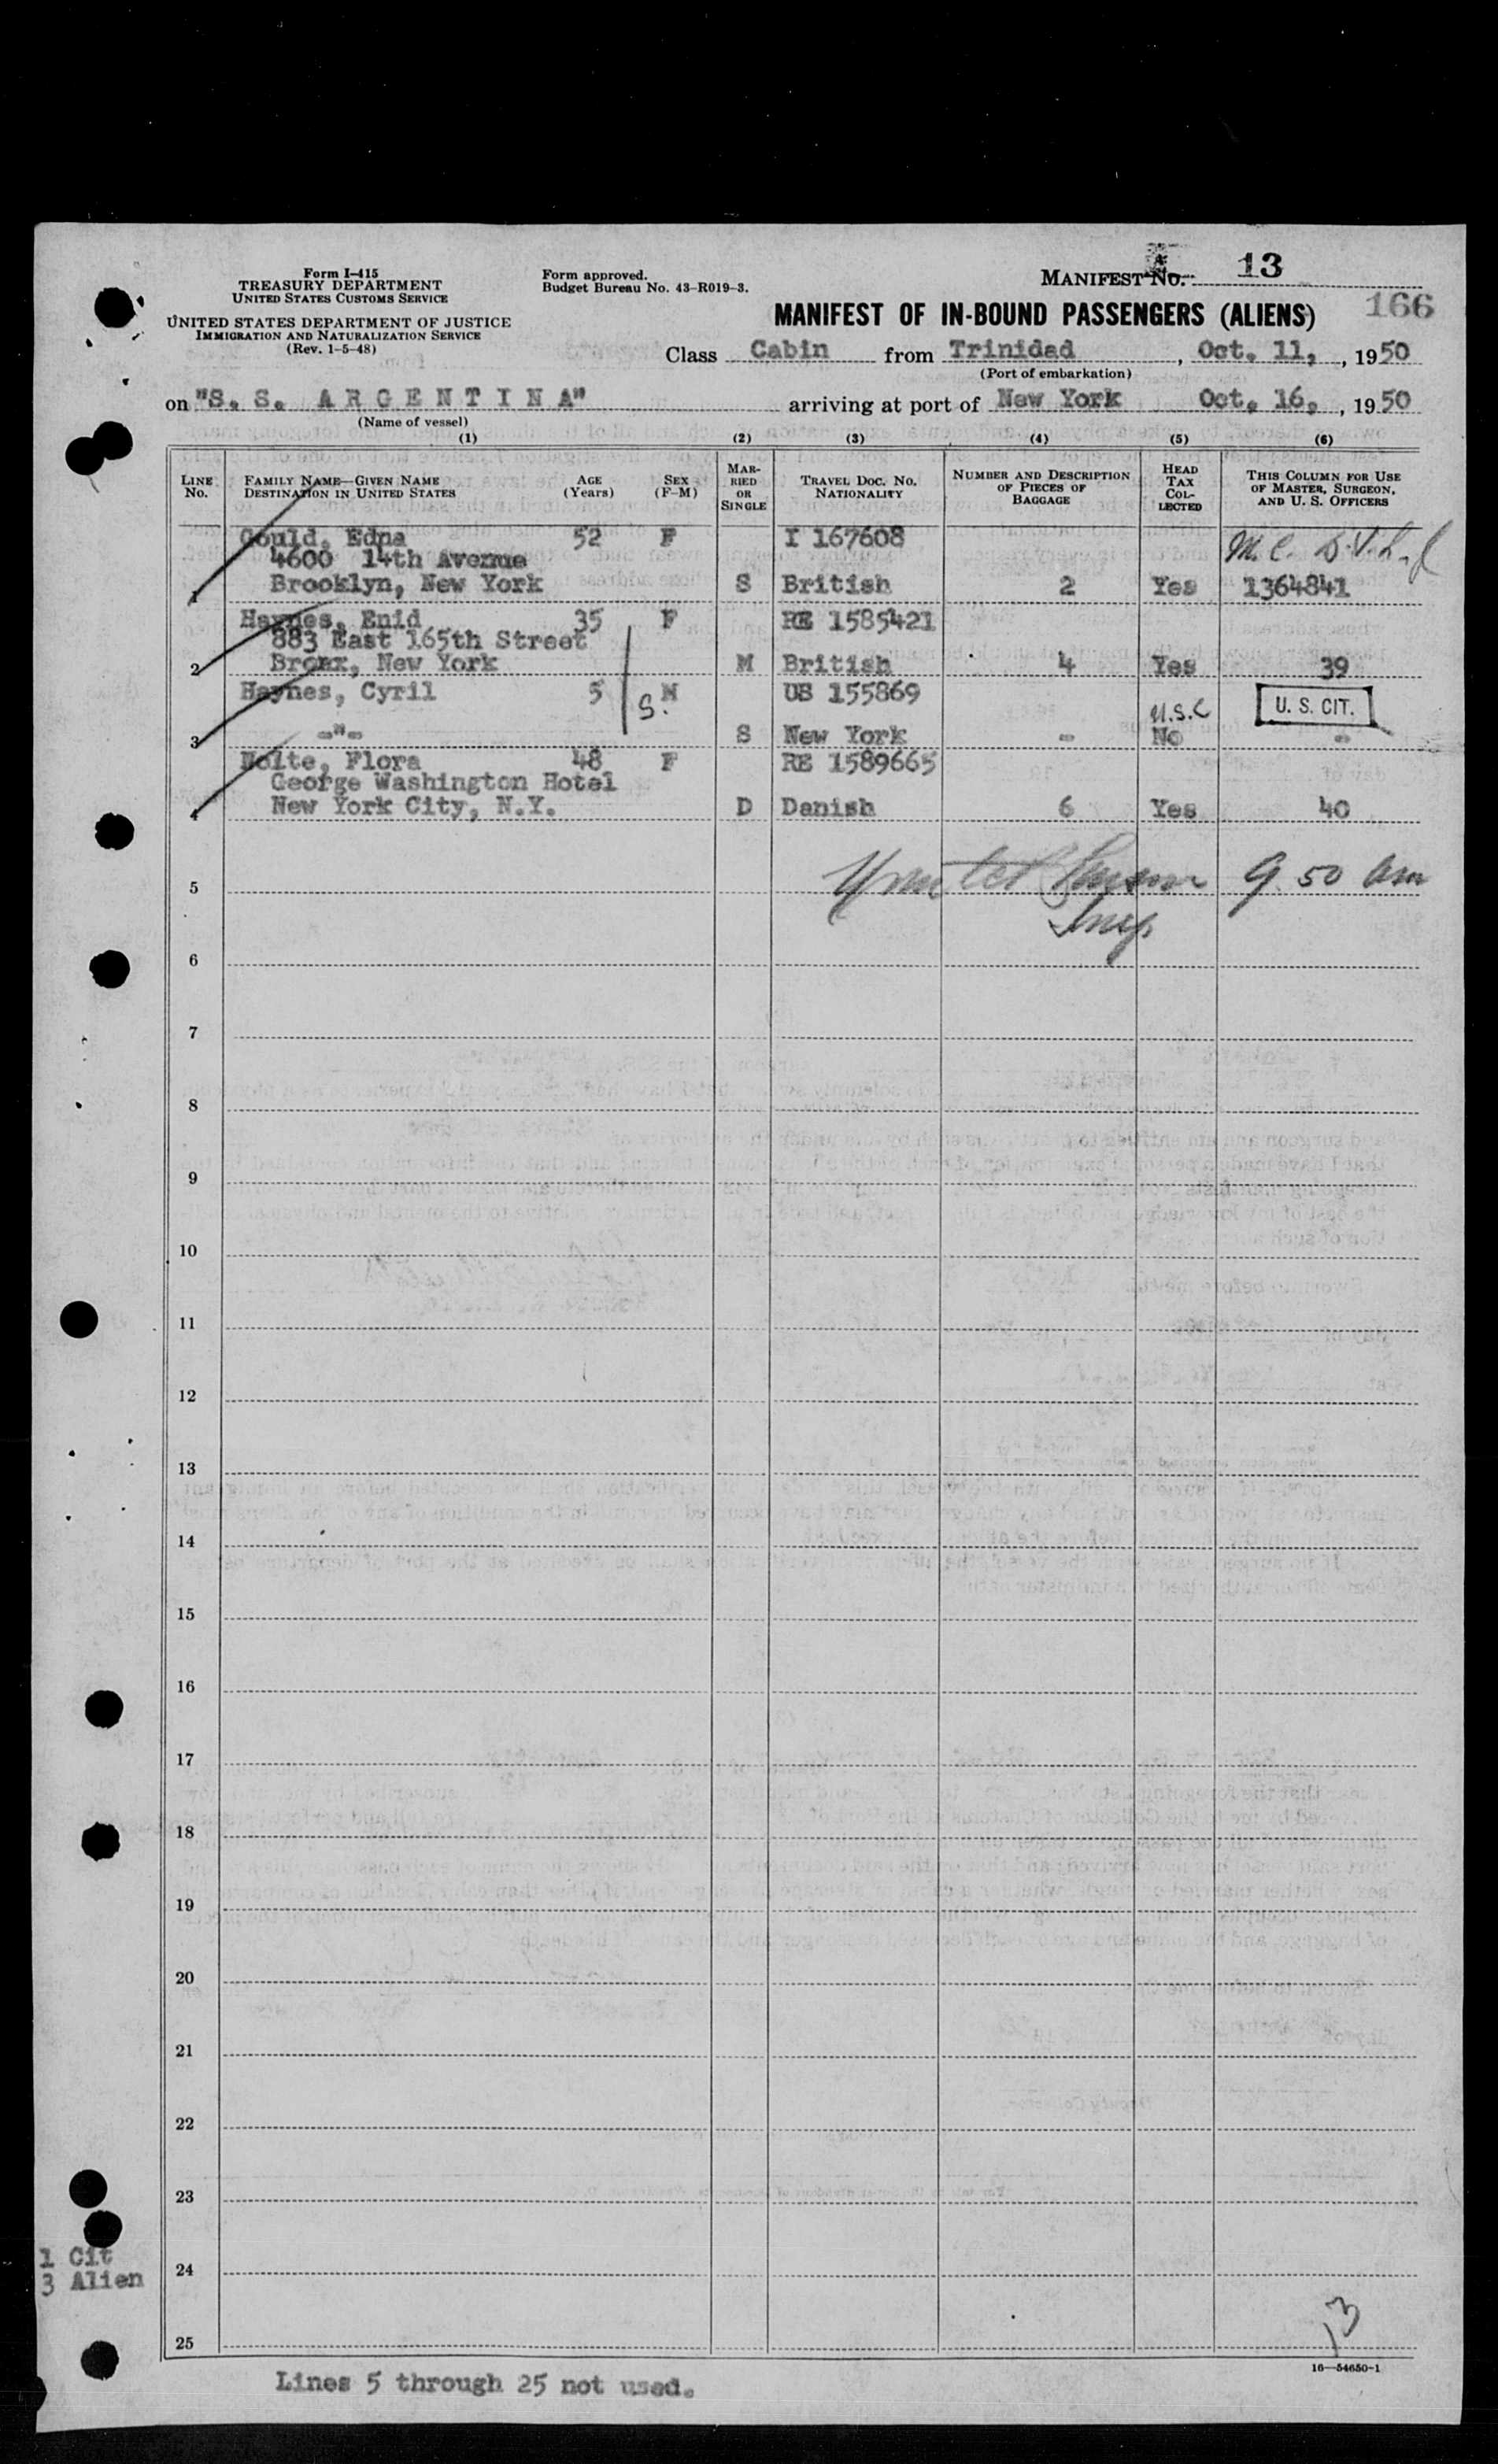 Form I-415
TREASURY DEPARTMENT
UNITED STATES CUSTOMS SERVICE
UNITED STATES DEPARTMENT OF JUSTICE
IMMIGRATION AND NATURALIZATION SERVICE
(Rev. 1-5-48)
Form approved.
Budget Bureau No. 43-R019-3.
MANIFEST No. 13
MANIFEST OF IN-BOUND PASSENGERS (ALIENS) 166
Class Cabin from Trinidad, Oct. 11, , 1950
(Port of embarkation)
on "S. S. A R G E N T I N A" arriving at port of New York Oct. 16, , 1950
(Name of vessel)
(1) (2) (3) (4) (5) (6)
LINE No. FAMILY NAME—GIVEN NAME DESTINATION IN UNITED STATES AGE (Years) SEX (F-M) MARRIED OR SINGLE TRAVEL DOC. No. NATIONALITY NUMBER AND DESCRIPTION OF PIECES OF BAGGAGE HEAD TAX COLLECTED THIS COLUMN FOR USE OF MASTER, SURGEON, AND U. S. OFFICERS
Gould, Edna 52 F I 167608
4600 14th Avenue
1 Brooklyn, New York S British 2 Yes 1364841
Haynes, Enid 35 F RE 1585421
883 East 165th Street
2 Bronx, New York M British 4 Yes 39
Haynes, Cyril 5 S. M US 155869 U.S.C U. S. CIT.
3 -"- S New York - No -
Nolte, Flora 48 F RE 1589665
George Washington Hotel
4 New York City, N.Y. D Danish 6 Yes 40
5 9 50 am
Insp.
6
7
8
9
10
11
12
13
14
15
16
17
18
19
20
21
22
23
1 Cit
3 Alien
24
13
25
16—54650-1
Lines 5 through 25 not used.